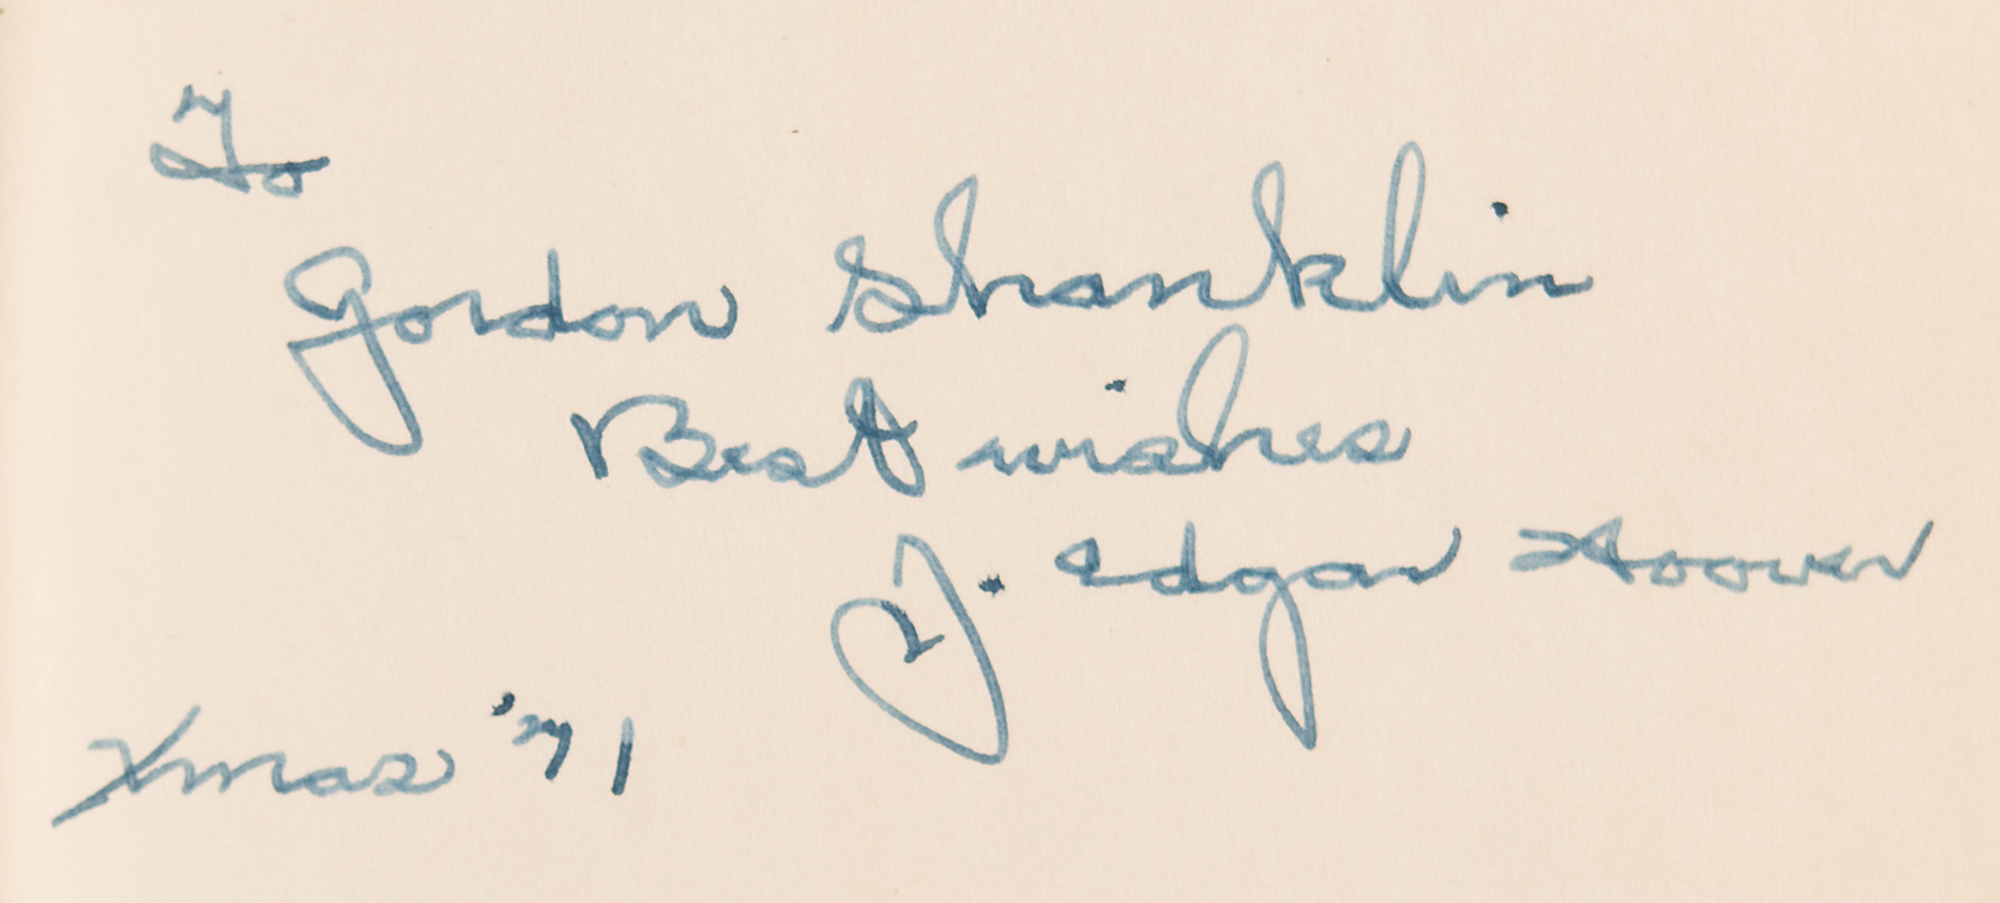 To
Gordon Shanklin
Best wishes
J. Edgar Hoover
Xmas '71